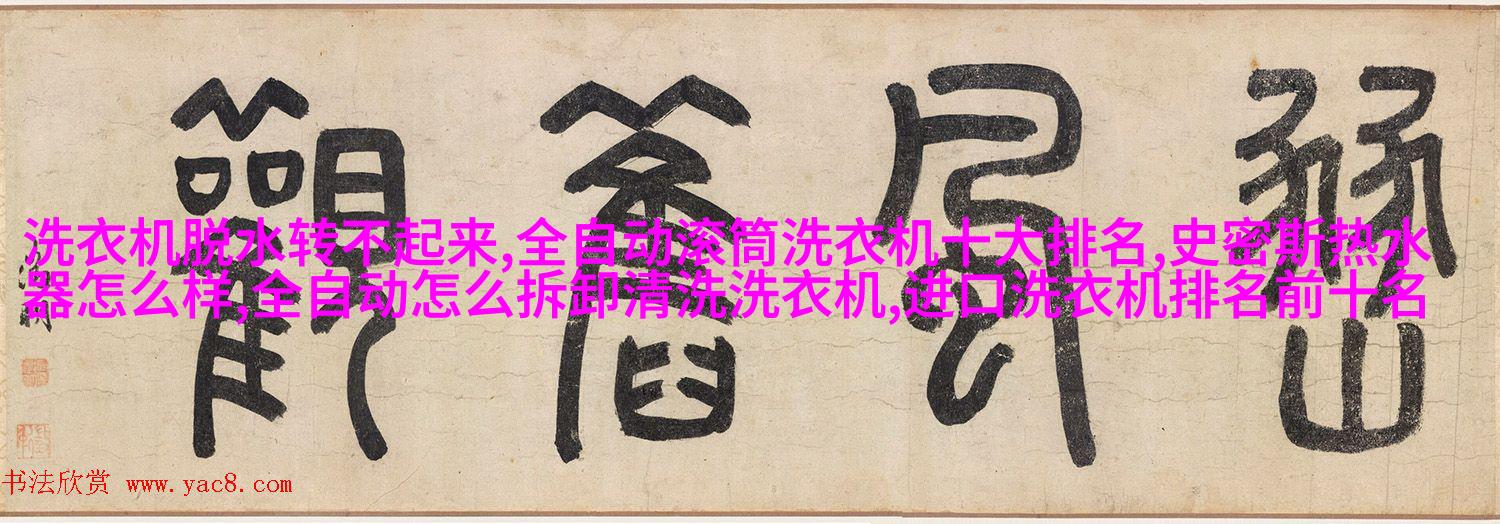 豳風舊觀
洗衣机脱水转不起来,全自动滚筒洗衣机十大排名,史密斯热水
器怎么样,全自动怎么拆卸清洗洗衣机,进口洗衣机排名前十名
书法欣赏 www.yac8.com